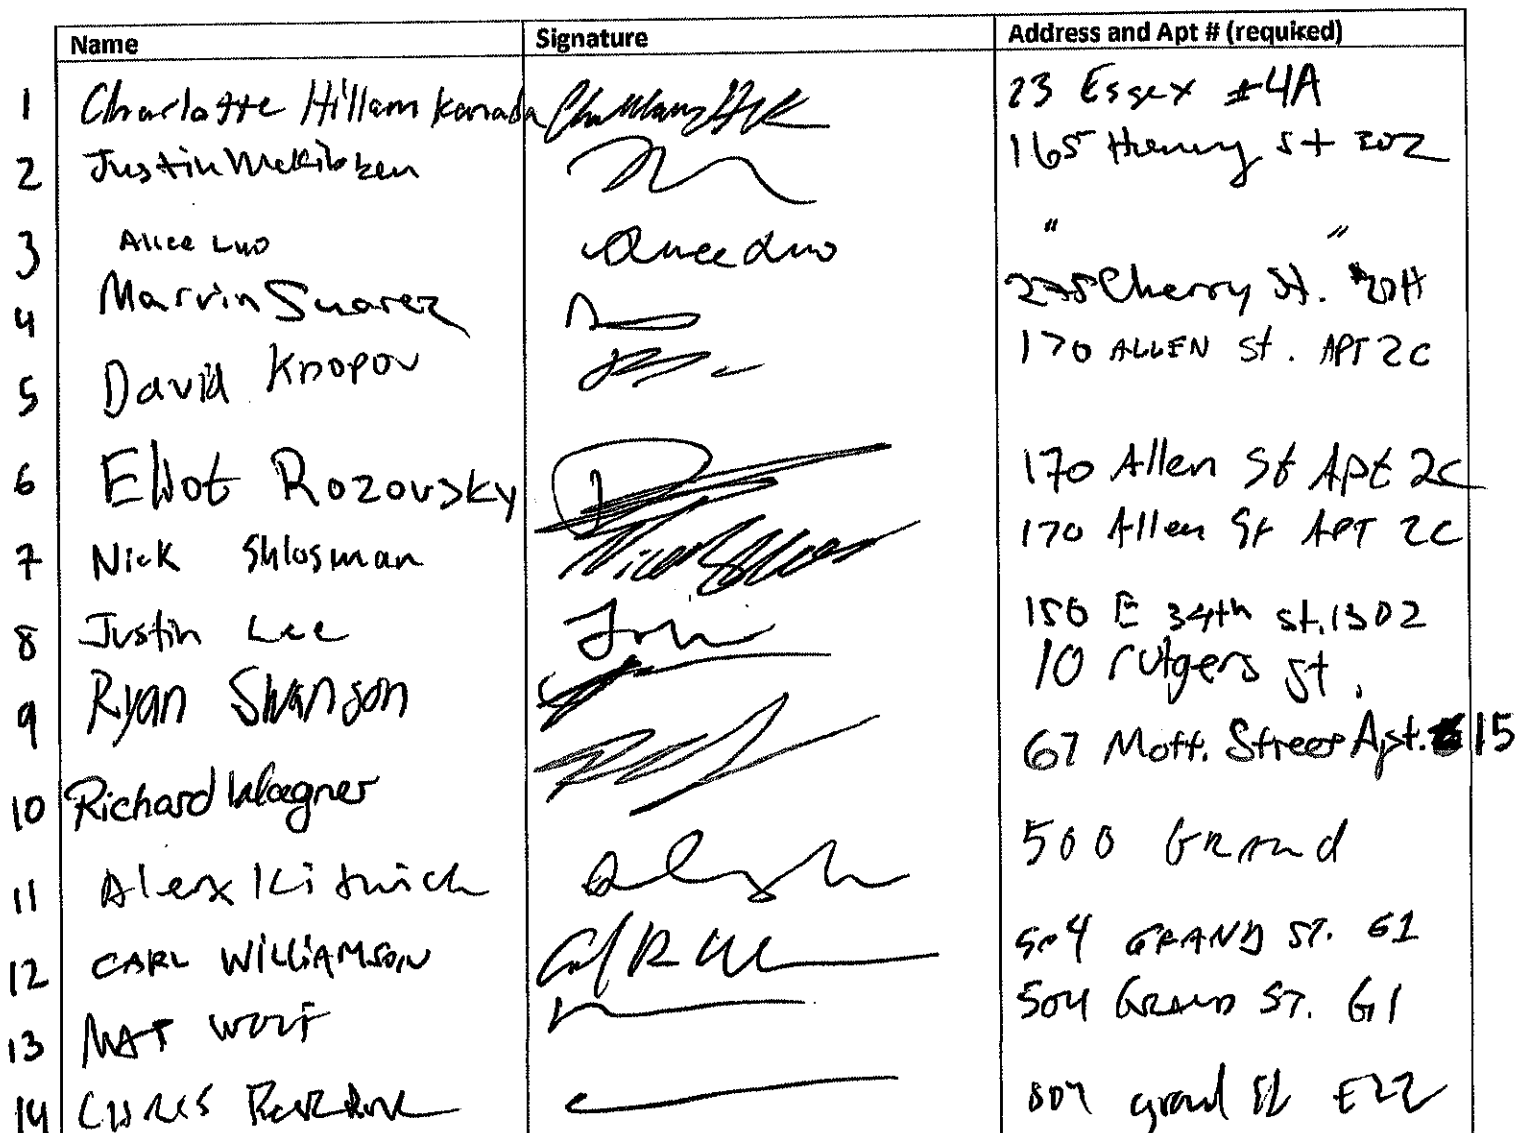 Name Signature Address and Apt # (required)
1 Charlotte Hillam Kanada 23 Essex #4A
2 Justin McKibben 165 Henry St 302
3 Alice Luo Alice Luo " "
4 Marvin Suarez Cherry St. 20H
5 David Knopov 170 ALLEN St. APT 2C
6 Eliot Rozovsky 170 Allen St Apt 2C
7 Nick Shlosman 170 Allen St APT 2C
8 Justin Lee E 34th st. 1302
9 Ryan Swanson 10 rutgers st.
10 Richard Wagner 67 Mott. Street Apt. 15
11 Alex Kitnick 500 Grand
12 CARL WILLIAMSON 504 GRAND ST. G1
13 MAT WOLF 504 GRAND ST. G1
14 CHRIS grand St E22